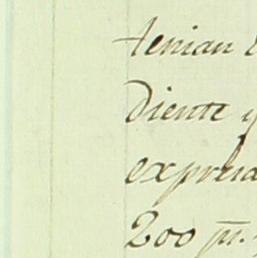 tenian
diente y
expresa
200 p.